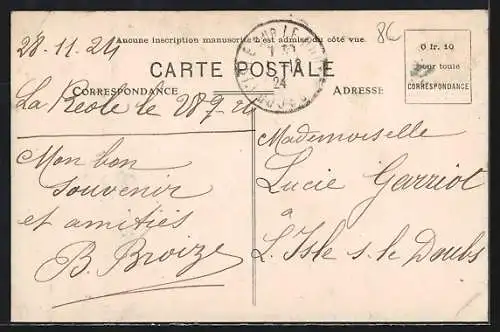 28-11-24
Aucune inscription manuscrite n'est admise du côté vue.
86
CARTE POSTALE
0 fr. 10
pour toute
CORRESPONDANCE
CORRESPONDANCE
ADRESSE
24
La Réole le 28-9-24
Mon bon
souvenir
et amitiés
B. Broize
Mademoiselle
Lucie Garriot
à
L'Isle s. le Doubs